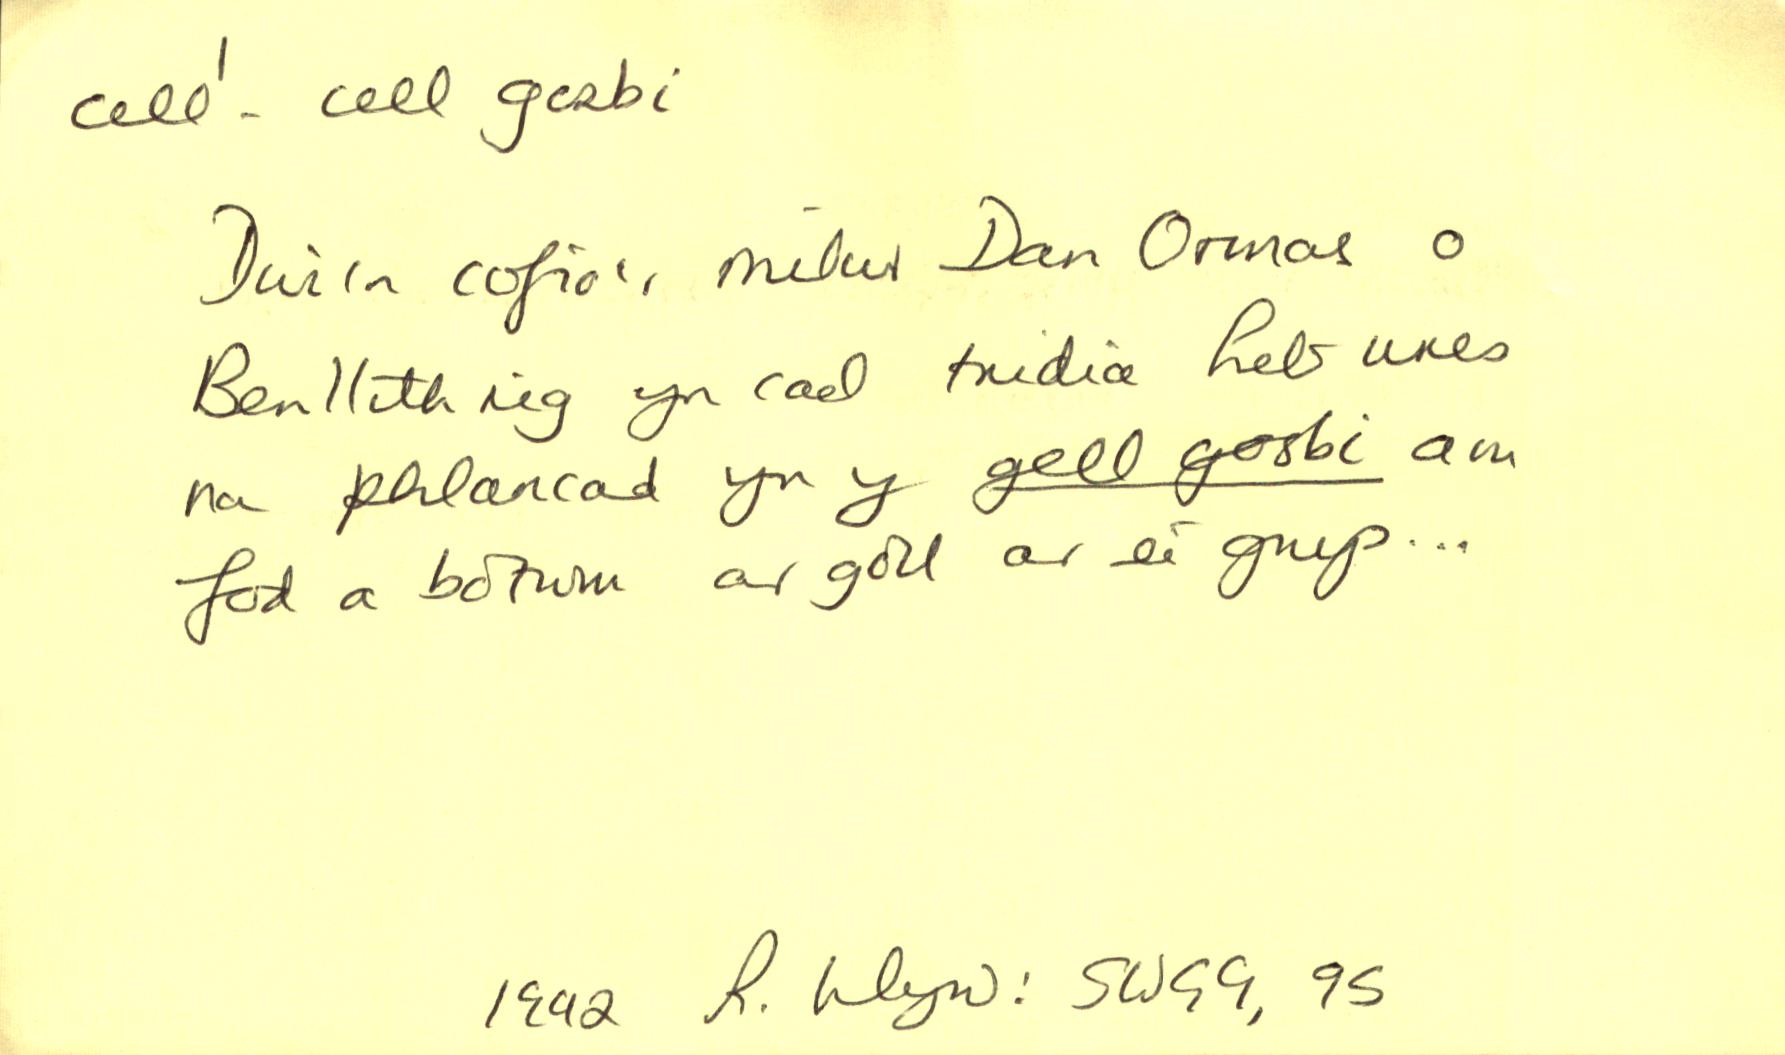 cell¹ - cell gosbi
Dwi'n cofio'r milwr Dan Ormas o
Benllithrig yn cael tridia heb wres
na phlancad yn y gell gosbi am
fod a botwm ar goll ar ei grys...
1992 R. Wyn: SWGG, 95